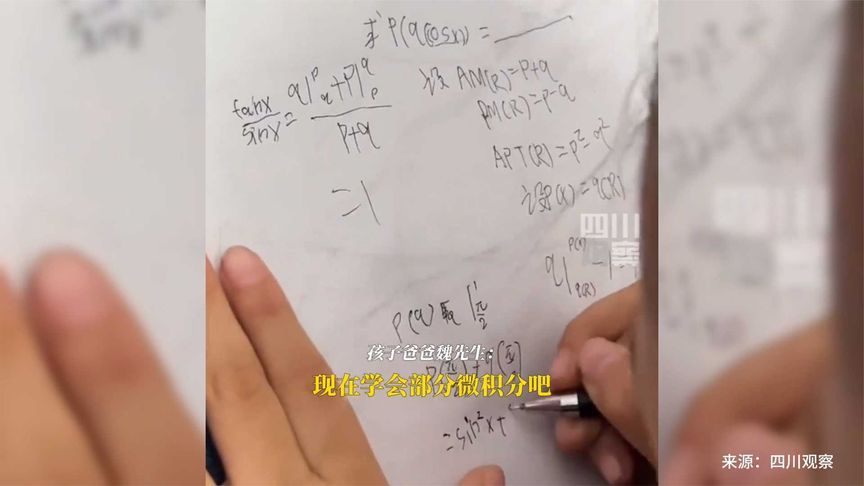 求 P(q(cosx)) = ______
tanx/sinx = (q|ᵖq + P|qₚ)/(P+q)
= 1
设 AM(R)=P+q
PM(R)=P-q
APT(R)=P²-q²
设P(X)=q(R)
四川
观察
P(q) 取 |
=sin²x+
孩子爸爸魏先生：
现在学会部分微积分吧
来源：四川观察